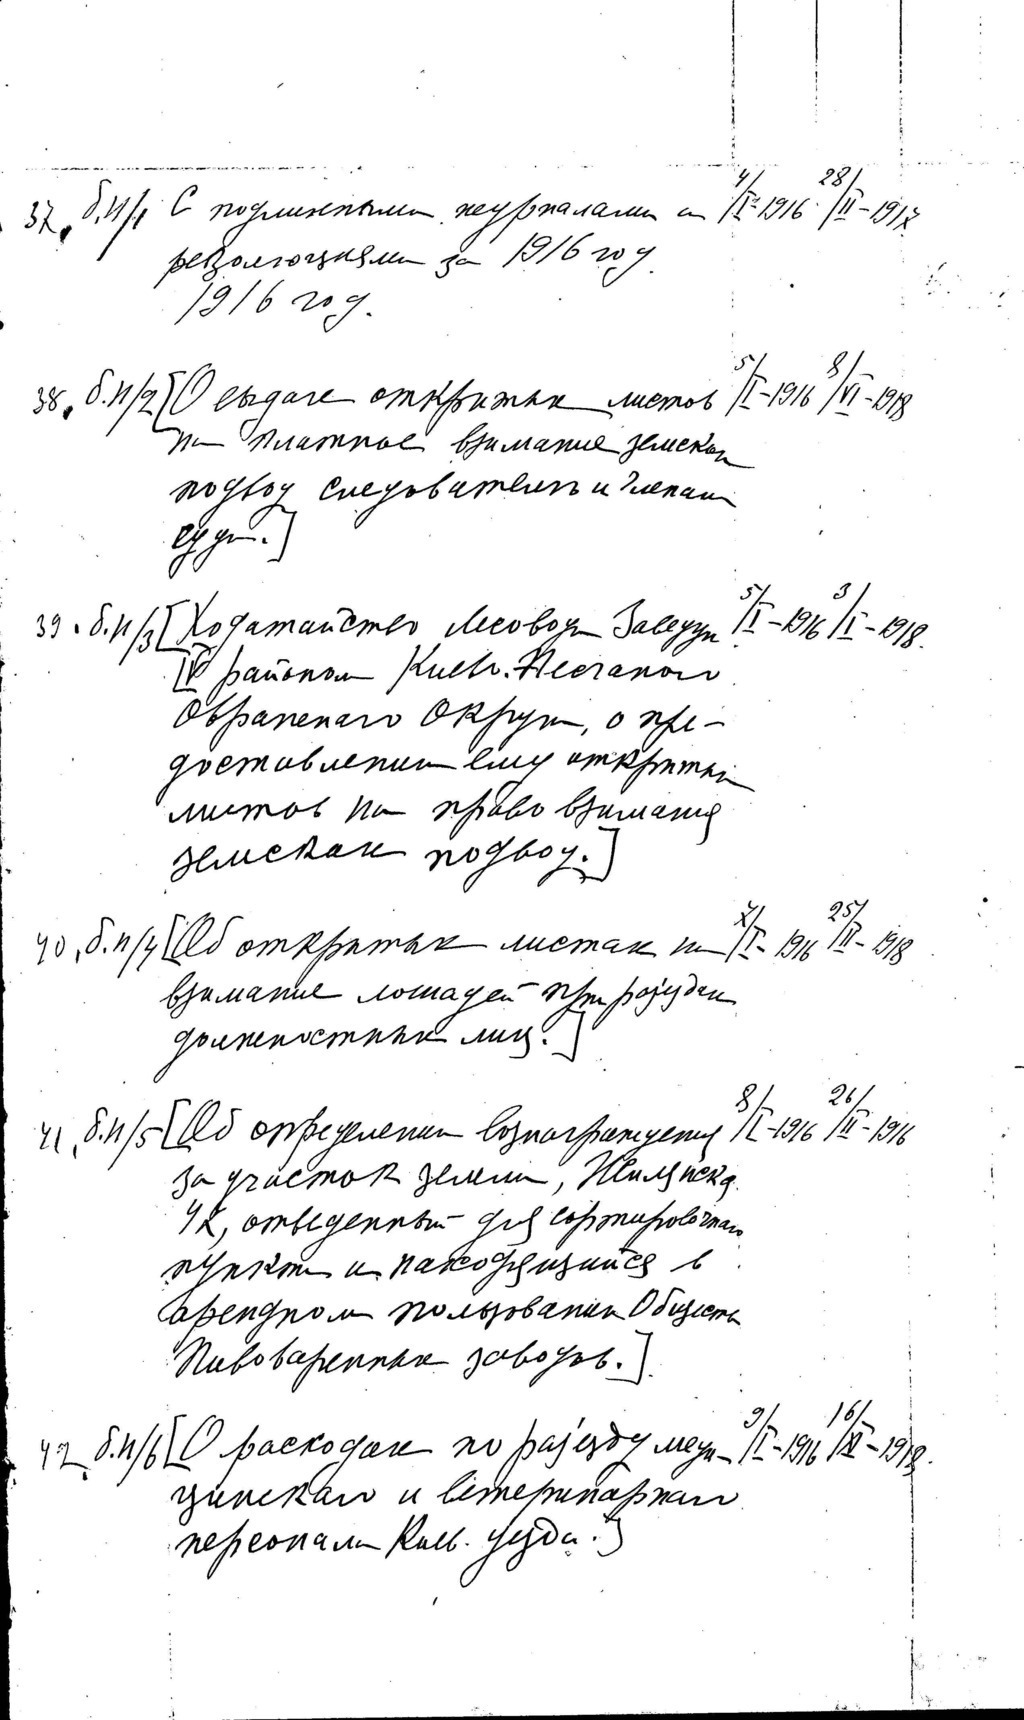 37. б.н/1 С подлинными журналами и 4/I-1916 28/II-1917
резолюциями за 1916 год
1916 год.
38. б.н/2 [О выдаче открытых листов 5/I-1916 8/VI-1918
на платное взимание земских
подвод следователям и членам
суда.]
39. б.н/3 [Ходатайство Лесовода Заведую 5/I-1916 3/I-1918.
IV районом Киев. Песчано
Овражного Округа, о пре-
доставлении ему открытых
листов на право взимания
земских подвод.]
40. б.н/4 [Об открытых листах на 7/I-1916 25/II-1918
взимание лошадей при разъездах
должностных лиц.]
41. б.н/5 [Об определении вознаграждения 8/I-1916 26/II-1916
за участок земли, Жилянская
42, отведенный для сортировочного
пункта и находящийся в
арендном пользовании Общества
Пивоваренных заводов.]
42. б.н/6 [О расходах по разъезду меди- 9/I-1916 16/XI-1918.
цинского и ветеринарного
персонала Киев. уезда.]